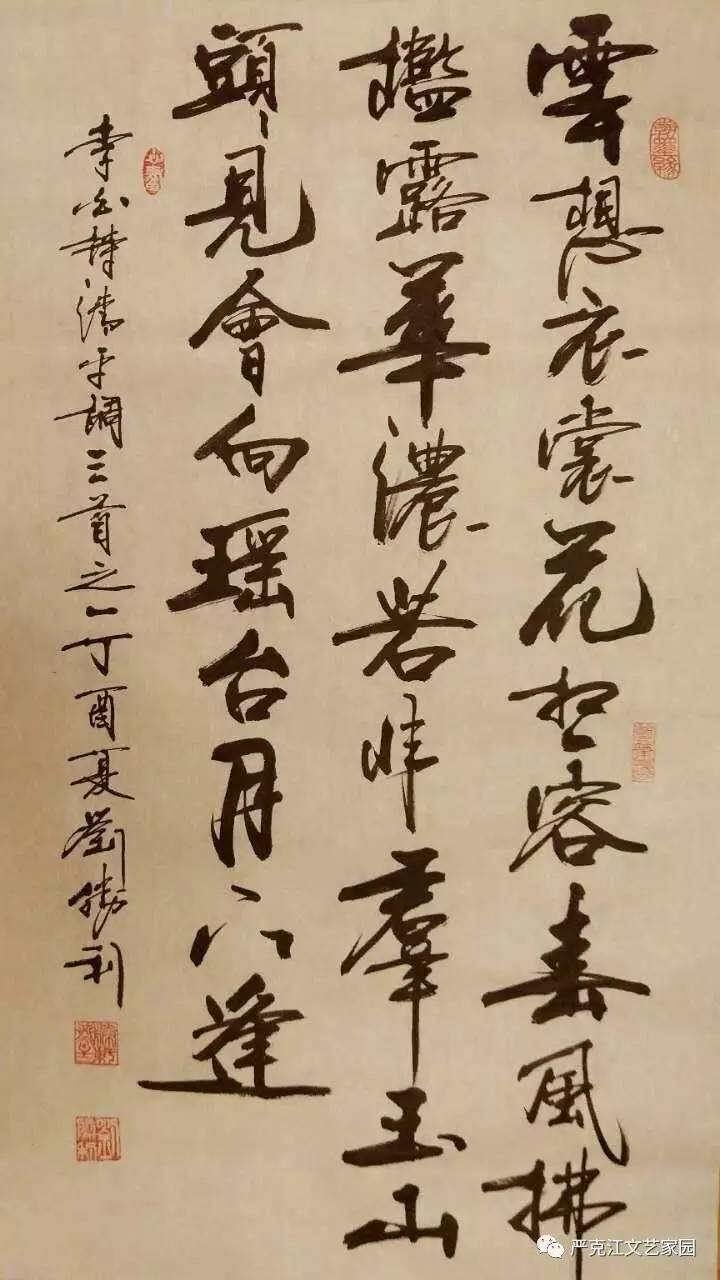 雲想衣裳花想容春風拂
檻露華濃若非羣玉山
頭見會向瑶台月下逢
李白詩清平調三首之一丁酉夏劉勝利
严克江文艺家园